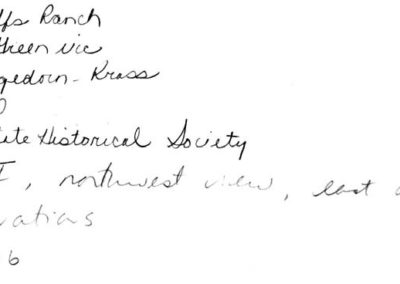 ffs Ranch
Green vic
gedorn-Krass
0
ate Historical Society
I, northwest view, east
vations
6